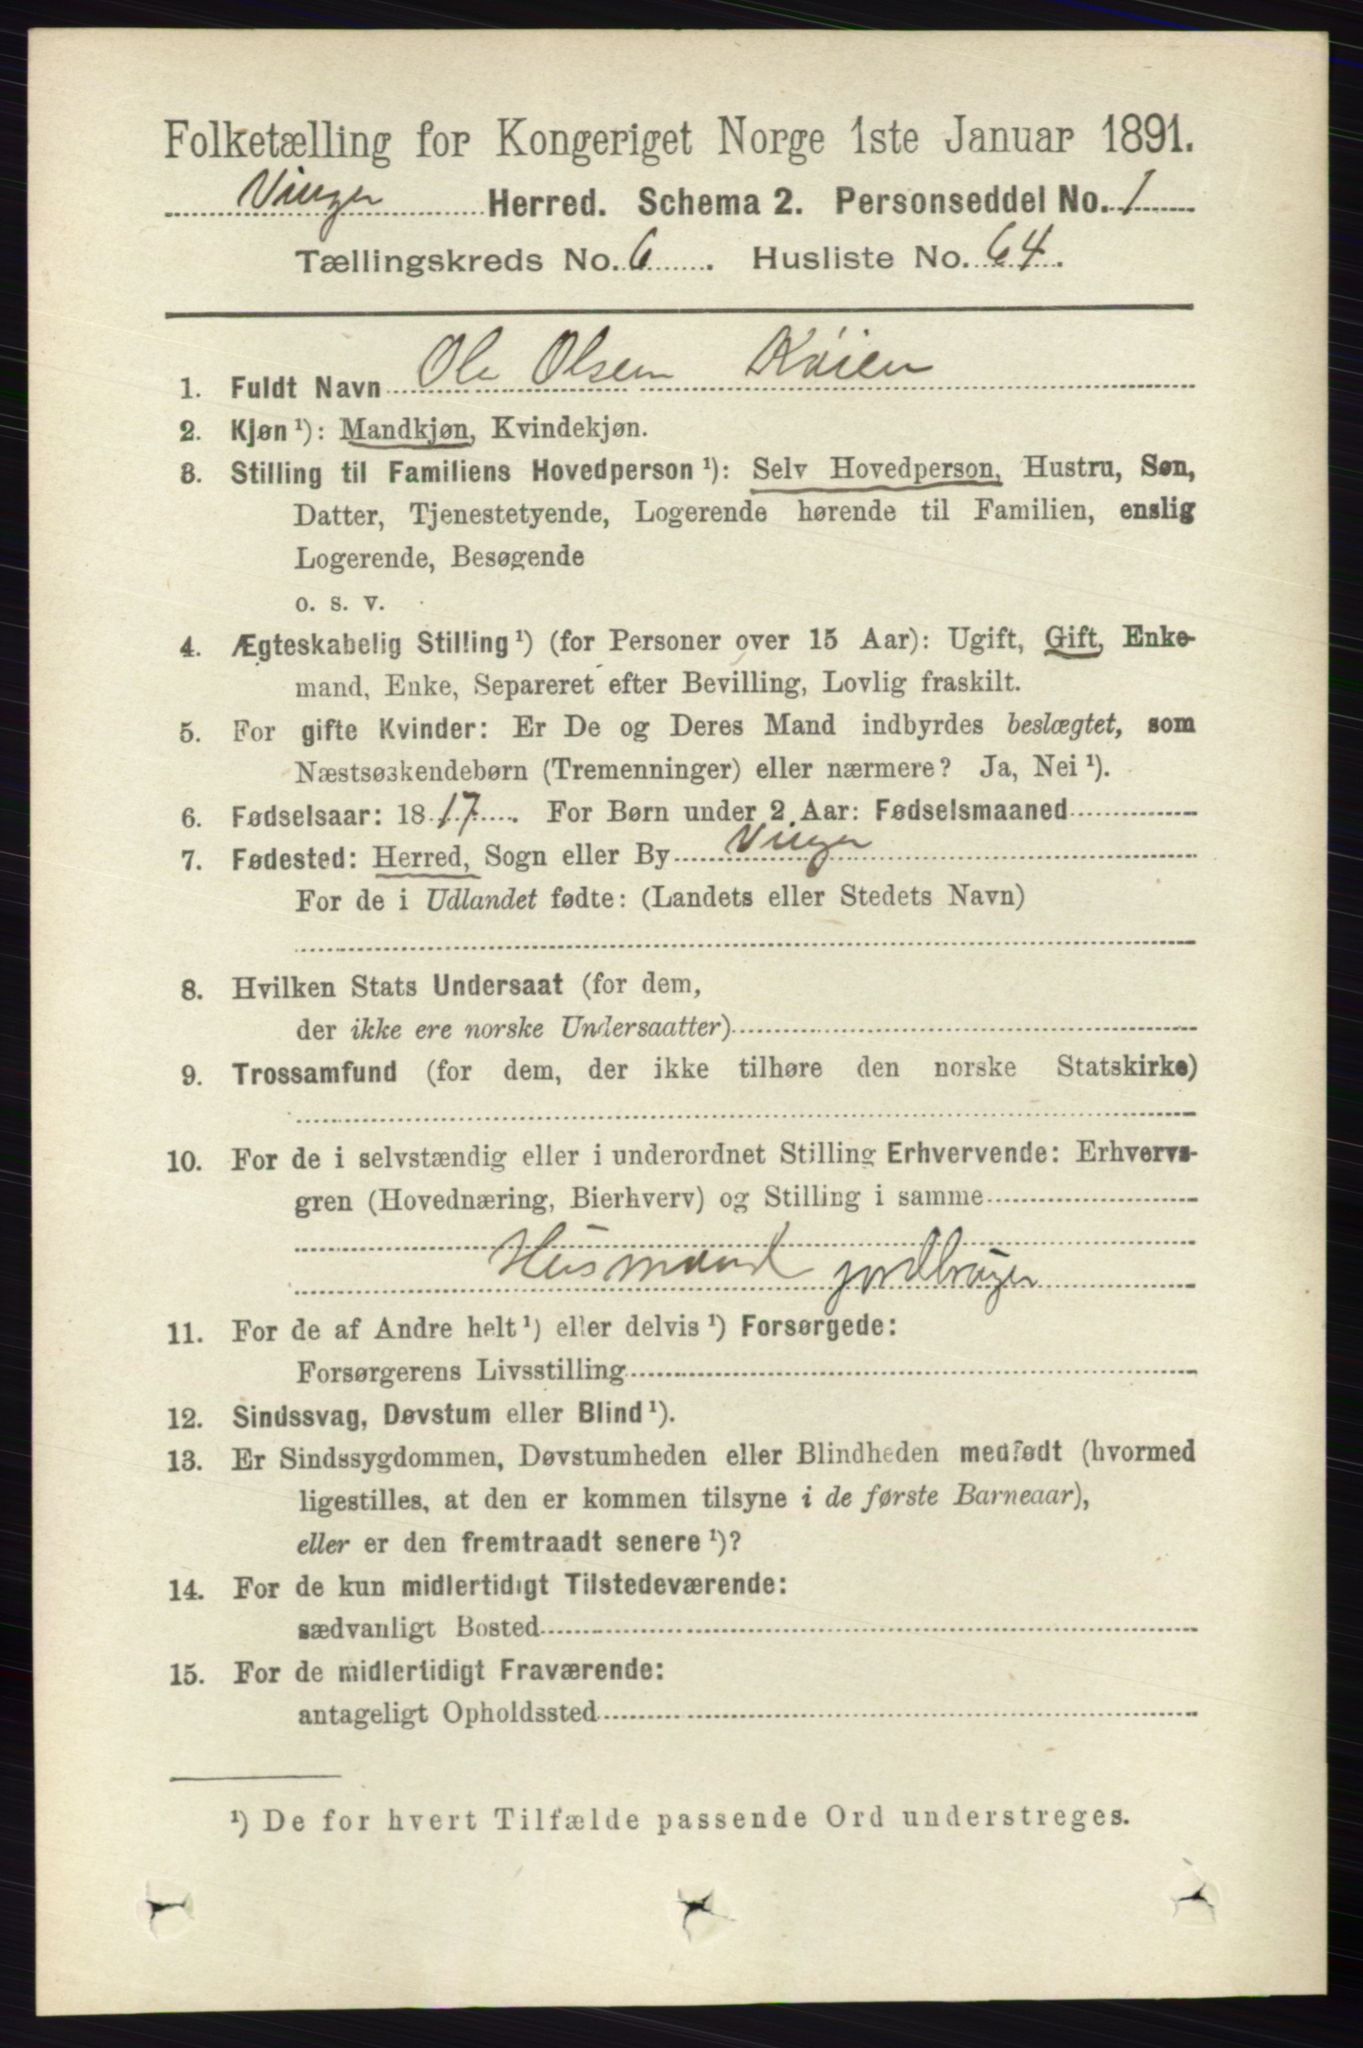 Folketælling for Kongeriget Norge 1ste Januar 1891.
Vinger Herred. Schema 2. Personseddel No. 1
Tællingskreds No. 6. Husliste No. 64.
1. Fuldt Navn Ole Olsen Köien
2. Kjøn ¹): Mandkjøn, Kvindekjøn.
3. Stilling til Familiens Hovedperson ¹): Selv Hovedperson, Hustru, Søn,
Datter, Tjenestetyende, Logerende hørende til Familien, enslig
Logerende, Besøgende
o. s. v.
4. Ægteskabelig Stilling ¹) (for Personer over 15 Aar): Ugift, Gift, Enke-
mand, Enke, Separeret efter Bevilling, Lovlig fraskilt.
5. For gifte Kvinder: Er De og Deres Mand indbyrdes beslægtet, som
Næstsøskendebørn (Tremenninger) eller nærmere? Ja, Nei ¹).
6. Fødselsaar: 1817. For Børn under 2 Aar: Fødselsmaaned
7. Fødested: Herred, Sogn eller By Vinger
For de i Udlandet fødte: (Landets eller Stedets Navn)
8. Hvilken Stats Undersaat (for dem,
der ikke ere norske Undersaatter)
9. Trossamfund (for dem, der ikke tilhøre den norske Statskirke)
10. For de i selvstændig eller i underordnet Stilling Erhvervende: Erhvervs-
gren (Hovednæring, Bierhverv) og Stilling i samme
Husmand jordbruger
11. For de af Andre helt ¹) eller delvis ¹) Forsørgede:
Forsørgerens Livsstilling
12. Sindssvag, Døvstum eller Blind ¹).
13. Er Sindssygdommen, Døvstumheden eller Blindheden medfødt (hvormed
ligestilles, at den er kommen tilsyne i de første Barneaar),
eller er den fremtraadt senere ¹)?
14. For de kun midlertidigt Tilstedeværende:
sædvanligt Bosted
15. For de midlertidigt Fraværende:
antageligt Opholdssted
¹) De for hvert Tilfælde passende Ord understreges.